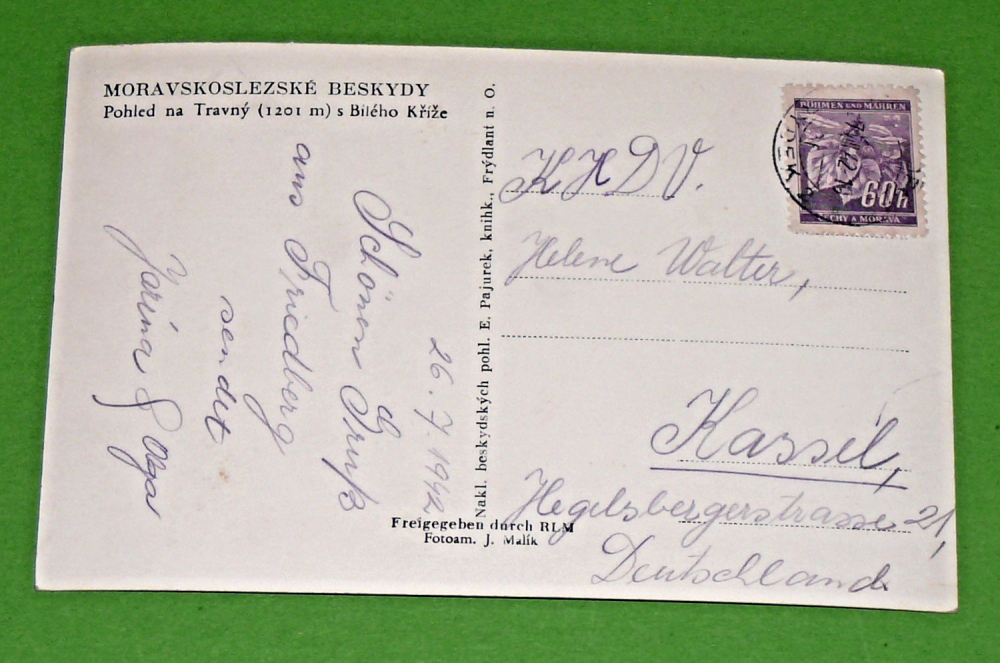 MORAVSKOSLEZSKÉ BESKYDY
Pohled na Travný (1201 m) s Bílého Kříže
26. 7. 1942
Schönen Gruß
aus Friedberg
sendet
Jarina & Olga
Nakl. beskydských pohl. E. Pajurek, knihk., Frýdlant n. O.
Freigegeben durch RLM
Fotoam. J. Malík
BÖHMEN UND MÄHREN
60h
ČECHY A MORAVA
KHDV.
Helene Walter,
Kassel,
Hegelsbergerstrasse 21,
Deutschland